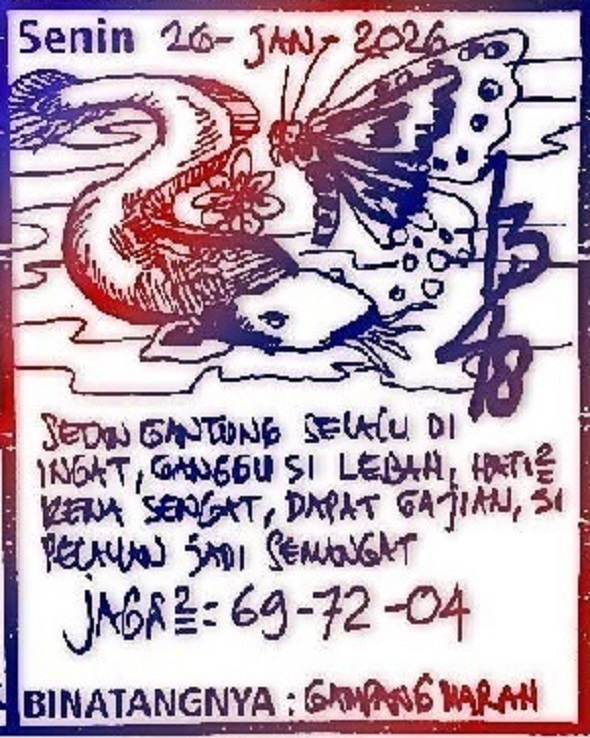 Senin 26-JAN-2026
SETAN GANTUNG SELALU DI
INGAT, GANGGU SI LEBAH, HATI2
KENA SENGAT, DAPAT GAJIAN, SI
JADI SEMANGAT
JAGA2= 69-72-04
BINATANGNYA : GAMPANG MARAH